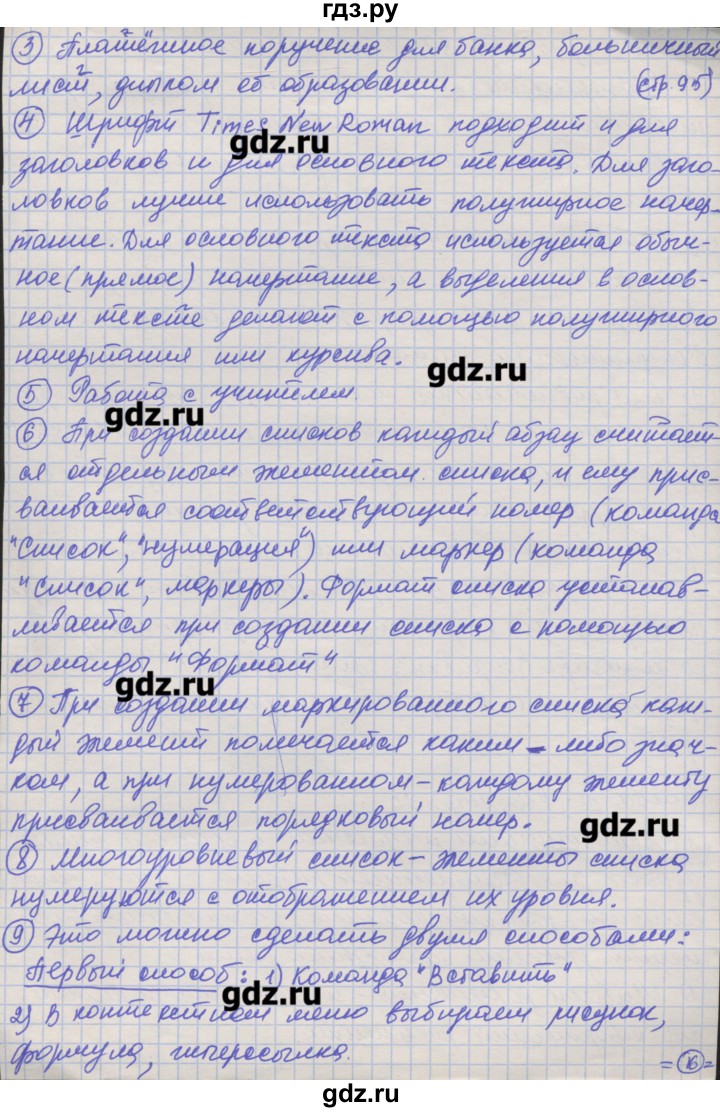 гдз.ру
③ Платёжное поручение для банка, больничный
лист, диплом об образовании. (стр. 95)
④ Шрифт Times New Roman подходит и для
gdz.ru
заголовков и для основного текста. Для заго-
ловков лучше использовать полужирное начер-
тание. Для основного текста используется обыч-
ное (прямое) начертание, а выделения в основ-
ном тексте делают с помощью полужирного
начертания или курсива.
gdz.ru
⑤ Работа с учителем.
gdz.ru
⑥ При создании списков каждый абзац считает-
ся отдельным элементом списка, и ему прис-
ваивается соответствующий номер (команда
"Список", "нумерация") или маркер (команда
"Список", маркеры). Формат списка устанав-
ливается при создании списка с помощью
команды "Формат"
gdz.ru
⑦ При создании маркированного списка каж-
дый элемент помечается каким-либо знач-
ком, а при нумерованном - каждому элементу
присваивается порядковый номер.
gdz.ru
⑧ Многоуровневый список - элементы списка
нумеруются с отображением их уровня.
⑨ Это можно сделать двумя способами:
Первый способ: 1) Команда "Вставить"
gdz.ru
2) В контекстном меню выбираем рисунок,
формула, гиперссылка.
= 16 =
gdz.ru